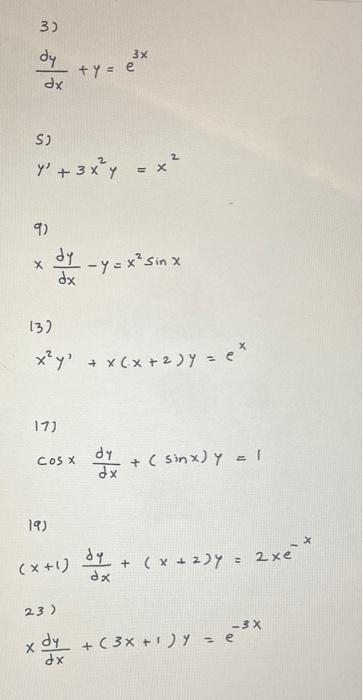 3)
dy/dx + y = e^3x
5)
y' + 3x²y = x²
9)
x dy/dx - y = x² sin x
13)
x²y' + x(x+2)y = e^x
17)
cos x dy/dx + (sinx)y = 1
19)
(x+1) dy/dx + (x+2)y = 2xe^-x
23)
x dy/dx + (3x+1)y = e^-3x